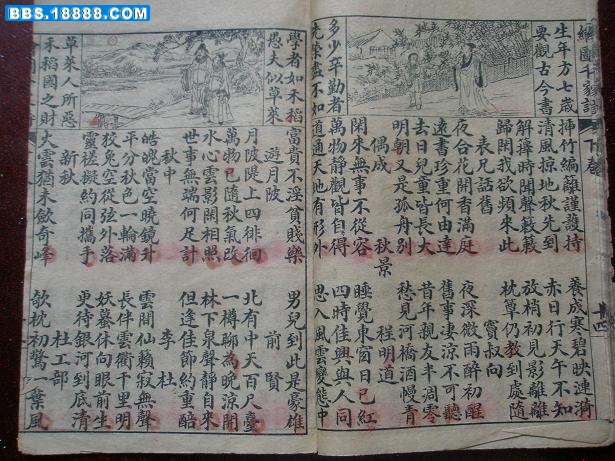 BBS.18888.COM
繪圖千家詩
生年方七歲
要觀古今書
多少年勤者
先榮盡不如
插竹編籬謹護持 養成寒碧映連漪
清風掠地秋先到 赤日行天午不知
解擇時聞聲簌簌 放梢初見影離離
歸閑我欲頻來此 枕簟仍教到處隨
表兄話舊 竇叔向
夜合花開香滿庭 夜深微雨醉初醒
遠書珍重何由達 舊事凄涼不可聽
去日兒童皆長大 昔年親友半凋零
明朝又是孤舟別 愁見河橋酒幔青
秋景
偶成 程明道
閑來無事不從容 睡覺東窗日已紅
萬物靜觀皆自得 四時佳興與人同
道通天地有形外 思入風雲變態中
學者如禾稻
愚夫似草萊
草萊人所惡
禾稻國之財
富貴不淫貧賤樂 男兒到此是豪雄
遊月陂 前賢
月陂隄上四徘徊 北有中天百尺臺
萬物已隨秋氣改 一樽聊為晚涼開
水心雲影閑相照 林下泉聲靜自來
世事無端何足計 但逢佳節約重醅
秋中 李杜
皓魄當空曉鏡升 雲間仙籟寂無聲
平分秋色一輪滿 長伴雲衢千里明
狡兔空從弦外落 妖蟇休向眼前生
靈槎擬約同攜手 更待銀河到底清
新秋 杜工部
大雲猶未斂奇峰 欹枕初驚一葉風